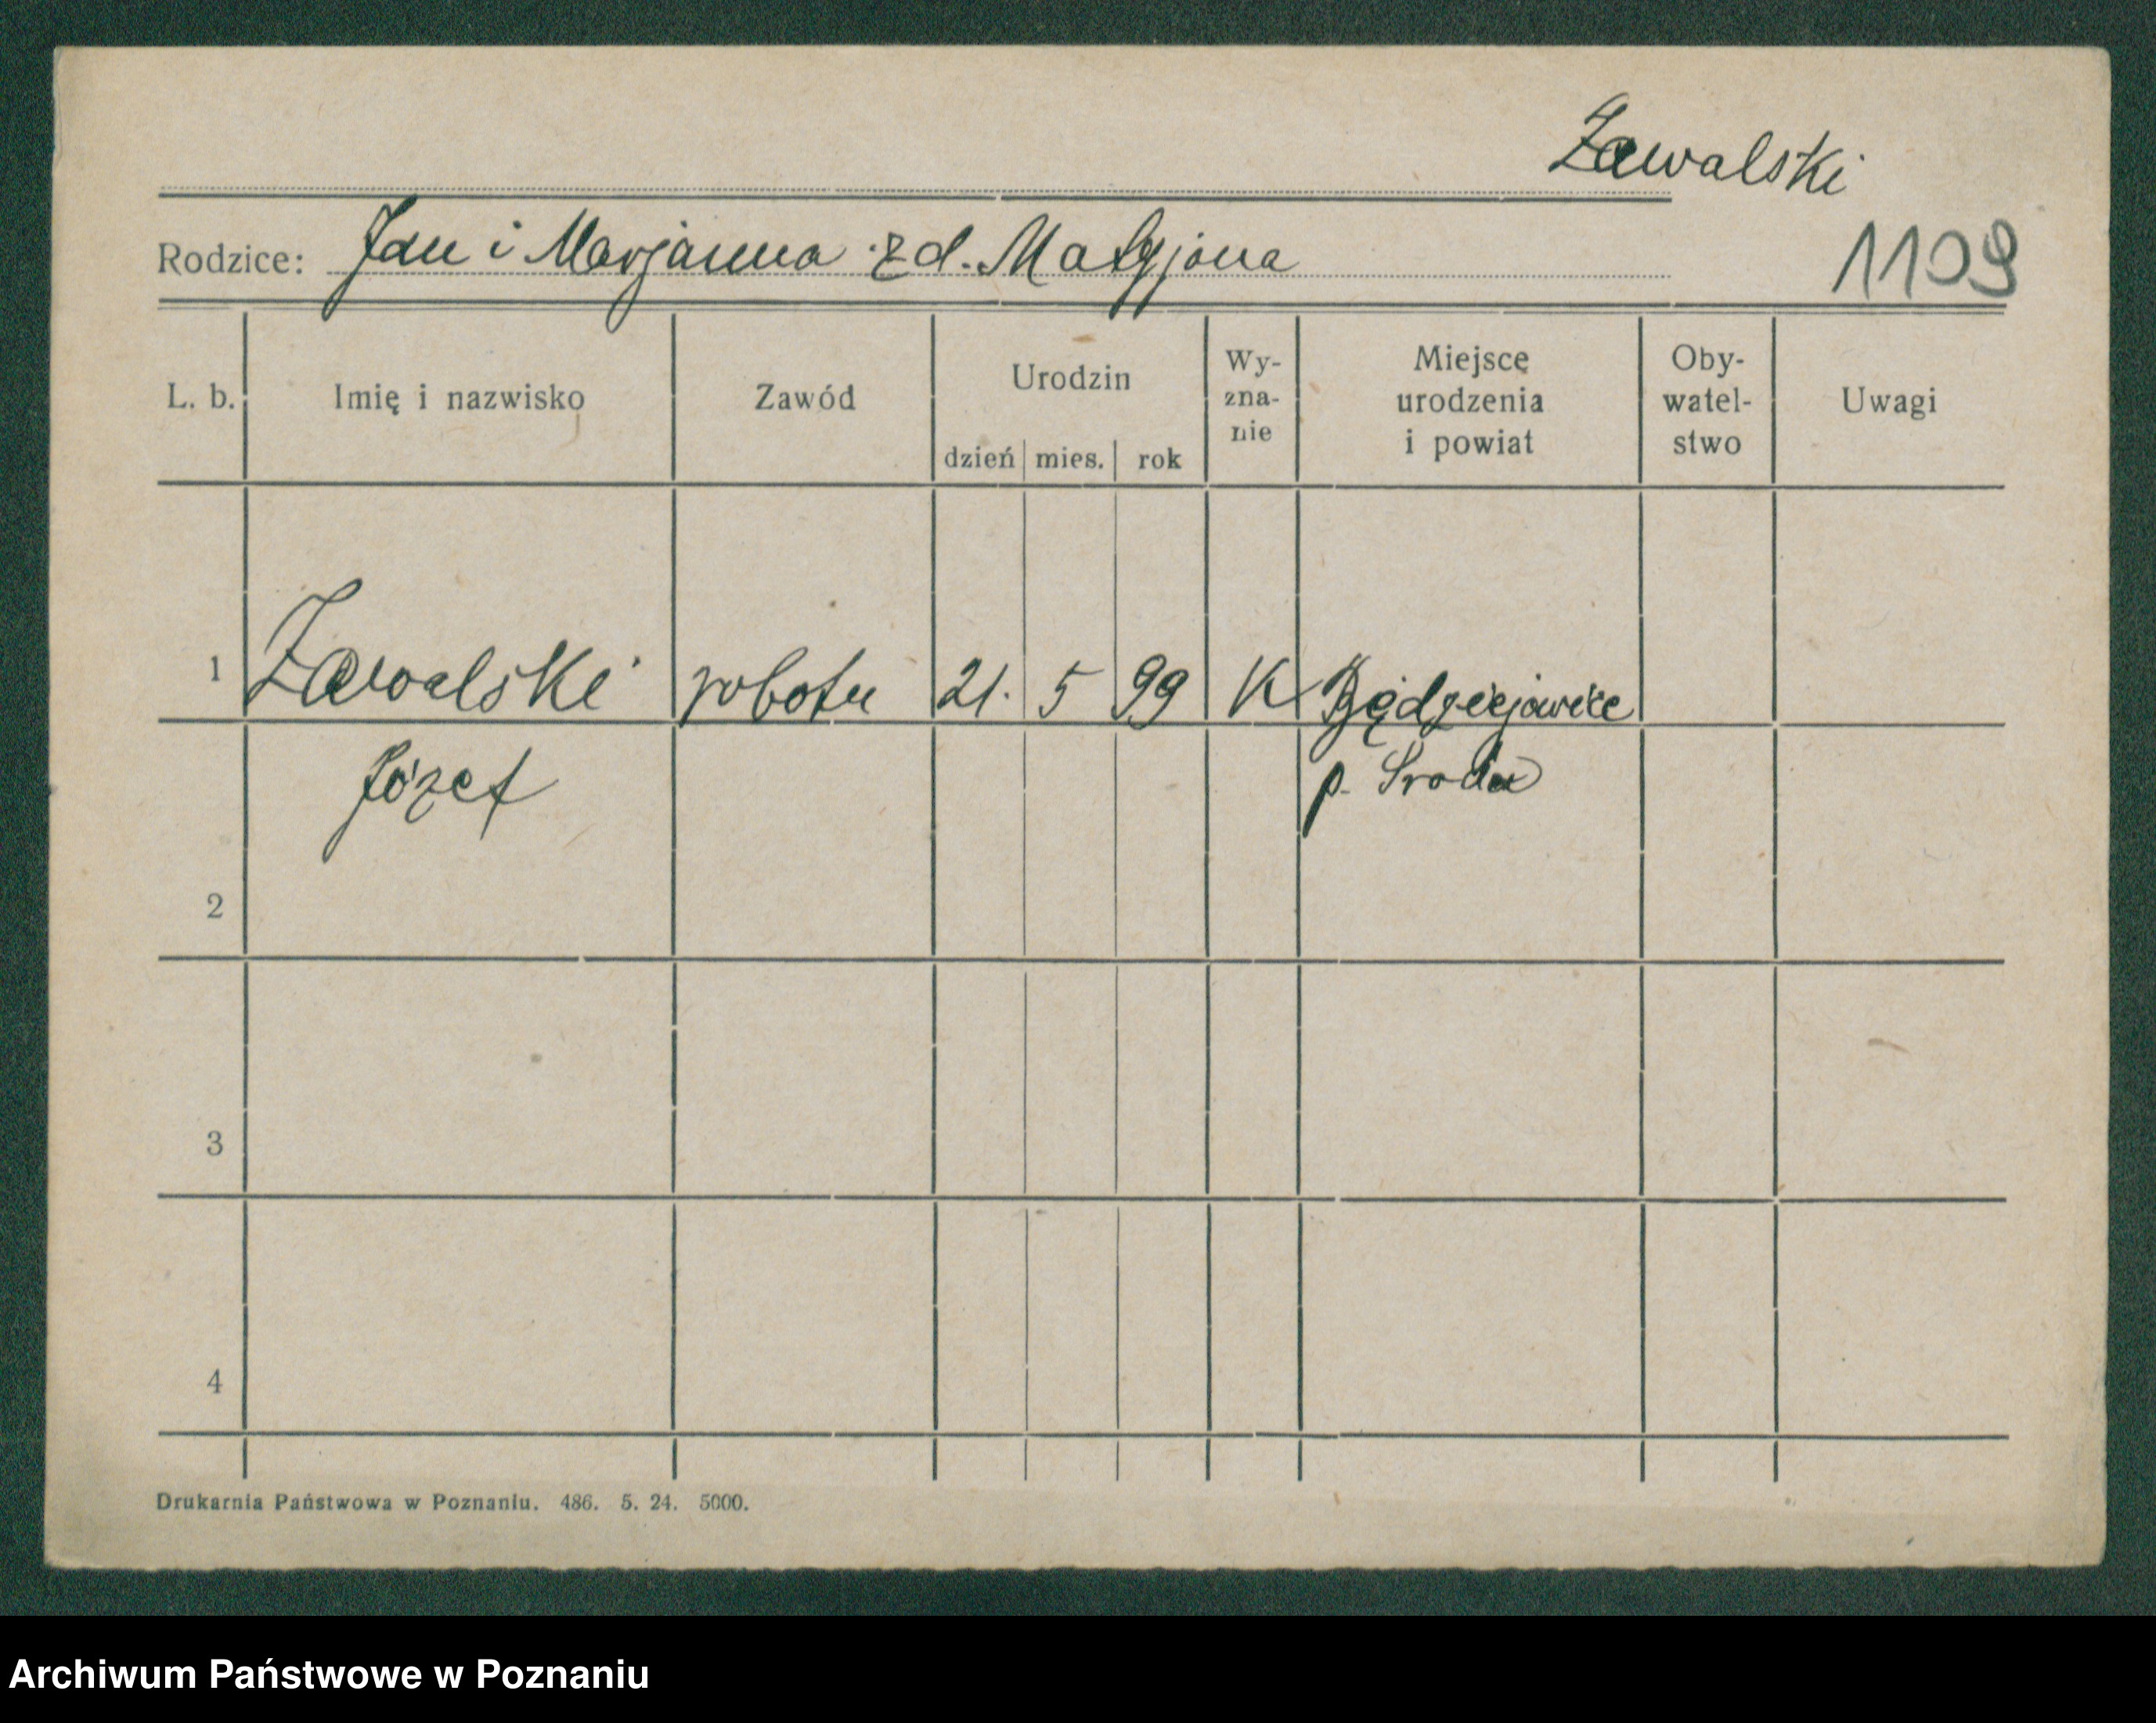 Zawalski
Rodzice: Jan i Marjanna z d.
1109
L. b. Imię i nazwisko Zawód Urodzin dzień mies. rok Wy-zna-nie Miejsce urodzenia i powiat Oby-watel-stwo Uwagi
1 Zawalski robotn 21. 5 99 K
Józef p. Sroda
2
3
4
Drukarnia Państwowa w Poznaniu. 486. 5. 24. 5000.
Archiwum Państwowe w Poznaniu